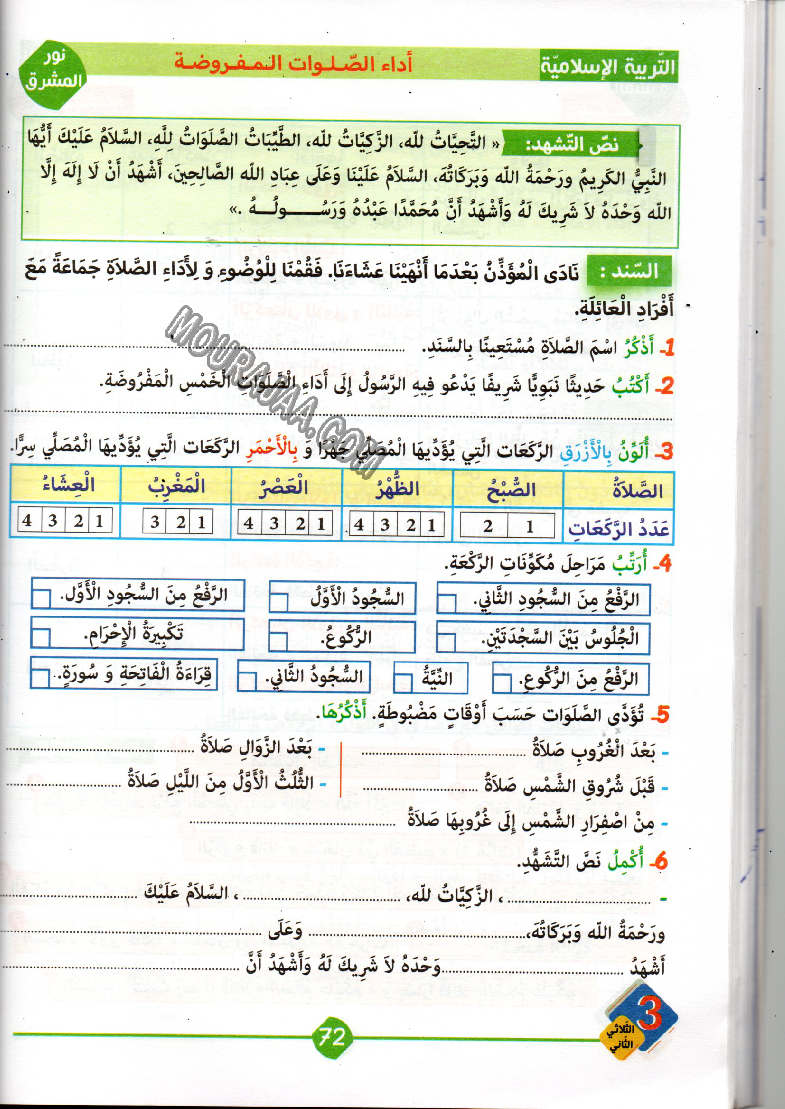 التّربية الإسلاميّة
أداء الصّلوات المفروضة
نور
المشرق
نصّ التّشهد: « التَّحِيَّاتُ لله، الزَّكِيَّاتُ لله، الطَّيِّبَاتُ الصَّلَوَاتُ لِلَّهِ، السَّلاَمُ عَلَيْكَ أَيُّهَا
النَّبِيُّ الكَرِيمُ ورَحْمَةُ الله وَبَرَكَاتُهُ، السَّلاَمُ عَلَيْنَا وَعَلَى عِبَادِ الله الصَّالِحِينَ، أَشْهَدُ أَنْ لَا إِلَهَ إِلَّا
الله وَحْدَهُ لاَ شَرِيكَ لَهُ وَأَشْهَدُ أَنَّ مُحَمَّدًا عَبْدُهُ وَرَسُـــولُـــهُ .»
السّند : نَادَى الْمُؤَذِّنُ بَعْدَمَا أَنْهَيْنَا عَشَاءَنَا. فَقُمْنَا لِلْوُضُوءِ وَ لِأَدَاءِ الصَّلاَةِ جَمَاعَةً مَعَ
أَفْرَادِ الْعَائِلَةِ.
1- أَذْكُرُ اسْمَ الصَّلاَةِ مُسْتَعِينًا بِالسَّنَدِ. ........................
2- أَكْتُبُ حَدِيثًا نَبَوِيًّا شَرِيفًا يَدْعُو فِيهِ الرَّسُولُ إِلَى أَدَاءِ الْصَّلَوَاتِ الْخَمْسِ الْمَفْرُوضَةِ.
........................
3- أُلَوِّنُ بِالْأَزْرَقِ الرَّكَعَات الَّتِي يُؤَدِّيهَا الْمُصَلِّي جَهْرًا وَ بِالْأَحْمَرِ الرَّكَعَات الَّتِي يُؤَدِّيهَا الْمُصَلِّي سِرًّا.
الصَّلاَةُ الصُّبْحُ الظُّهْرُ الْعَصْرُ الْمَغْرِبُ الْعِشَاءُ
عَدَدُ الرَّكَعَاتِ 1 2 1 2 3 4 1 2 3 4 1 2 3 1 2 3 4
4- أُرَتِّبُ مَرَاحِلَ مُكَوِّنَاتِ الرَّكْعَةِ.
الرَّفْعُ مِنَ السُّجُودِ الثَّانِي. السُّجُودُ الْأَوَّلُ الرَّفْعُ مِنَ السُّجُودِ الْأَوَّل.
الْجُلُوسُ بَيْنَ السَّجْدَتَيْنِ. الرُّكُوعُ. تَكْبِيرَةُ الْإِحْرَامِ.
الرَّفْعُ مِنَ الرُّكُوعِ. النِّيَّةُ السُّجُودُ الثَّانِي. قِرَاءَةُ الْفَاتِحَةِ وَ سُورَةٍ.
5- تُؤَدَّى الصَّلَوَات حَسَبَ أَوْقَاتٍ مَضْبُوطَةٍ. أَذْكُرُهَا.
- بَعْدَ الْغُرُوبِ صَلاَةُ ............ - بَعْدَ الزَّوَالِ صَلاَةُ ............
- قَبْلَ شُرُوقِ الشَّمْسِ صَلاَةُ ............ - الثُّلُثُ الْأَوَّلُ مِنَ اللَّيْلِ صَلاَةُ ............
- مِنْ اصْفِرَارِ الشَّمْسِ إِلَى غُرُوبِهَا صَلاَةُ ............
6- أُكْمِلُ نَصَّ التَّشَهُّدِ.
- ............، الزَّكِيَّاتُ لله، ............، السَّلاَمُ عَلَيْكَ ............
ورَحْمَةُ الله وَبَرَكَاتُهُ،............ وَعَلَى ............
أَشْهَدُ ............وَحْدَهُ لاَ شَرِيكَ لَهُ وَأَشْهَدُ أَنَّ ............
3
الثّلاثي
الثّاني
72
MOURAJAA.COM